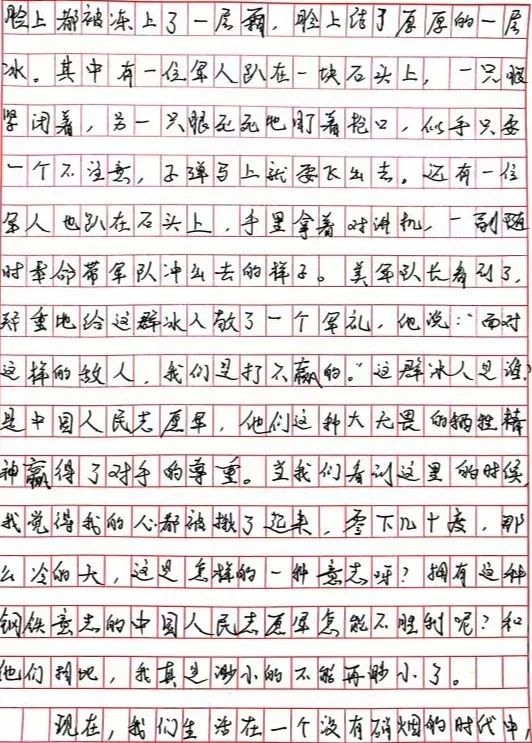 脸上都被冻上了一层霜，脸上结了厚厚的一层
冰。其中有一位军人趴在一块石头上，一只眼
紧闭着，另一只眼死死地盯着枪口，似乎只要
一个不注意，子弹马上就要飞出去。还有一位
军人也趴在石头上，手里拿着对讲机，一副随
时奉命带军队冲出去的样子。美军队长看到了，
郑重地给这群冰人敬了一个军礼，他说：“面对
这样的敌人，我们是打不赢的。”这群冰人是谁？
是中国人民志愿军，他们这种大无畏的牺牲精
神赢得了对手的尊重。当我们看到这里的时候，
我觉得我的心都被揪了起来，零下几十度，那
么冷的天，这是怎样的一种意志呀？拥有这种
钢铁意志的中国人民志愿军怎能不胜利呢？和
他们相比，我真是渺小的不能再渺小了。
现在，我们生活在一个没有硝烟的时代中，